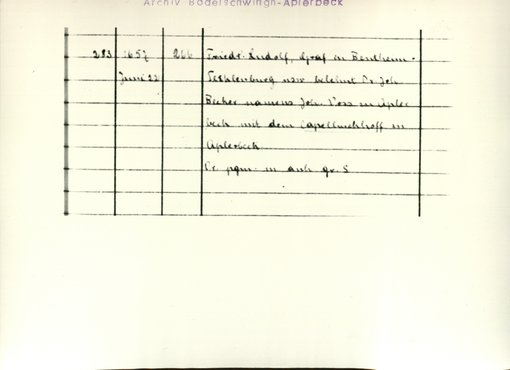 Archiv Bodelschwingh-Aplerbeck
283 1657 266 Friedr. Rudolf, Graf in Bentheim-
Juni 22 Tecklenburg usw belehnt Dr Joh
Becker namens Joh. Voss in Apler
beck mit dem Capellnhoff in
Aplerbeck
Or. pgm. m anh gr. S